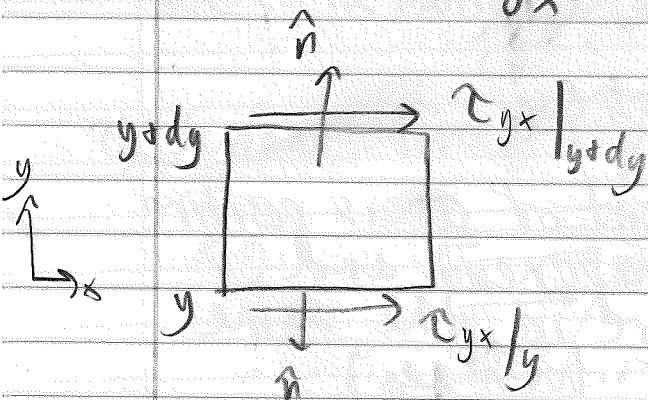 n̂
y+dy τyx|y+dy
y
x
y τyx|y
n̂